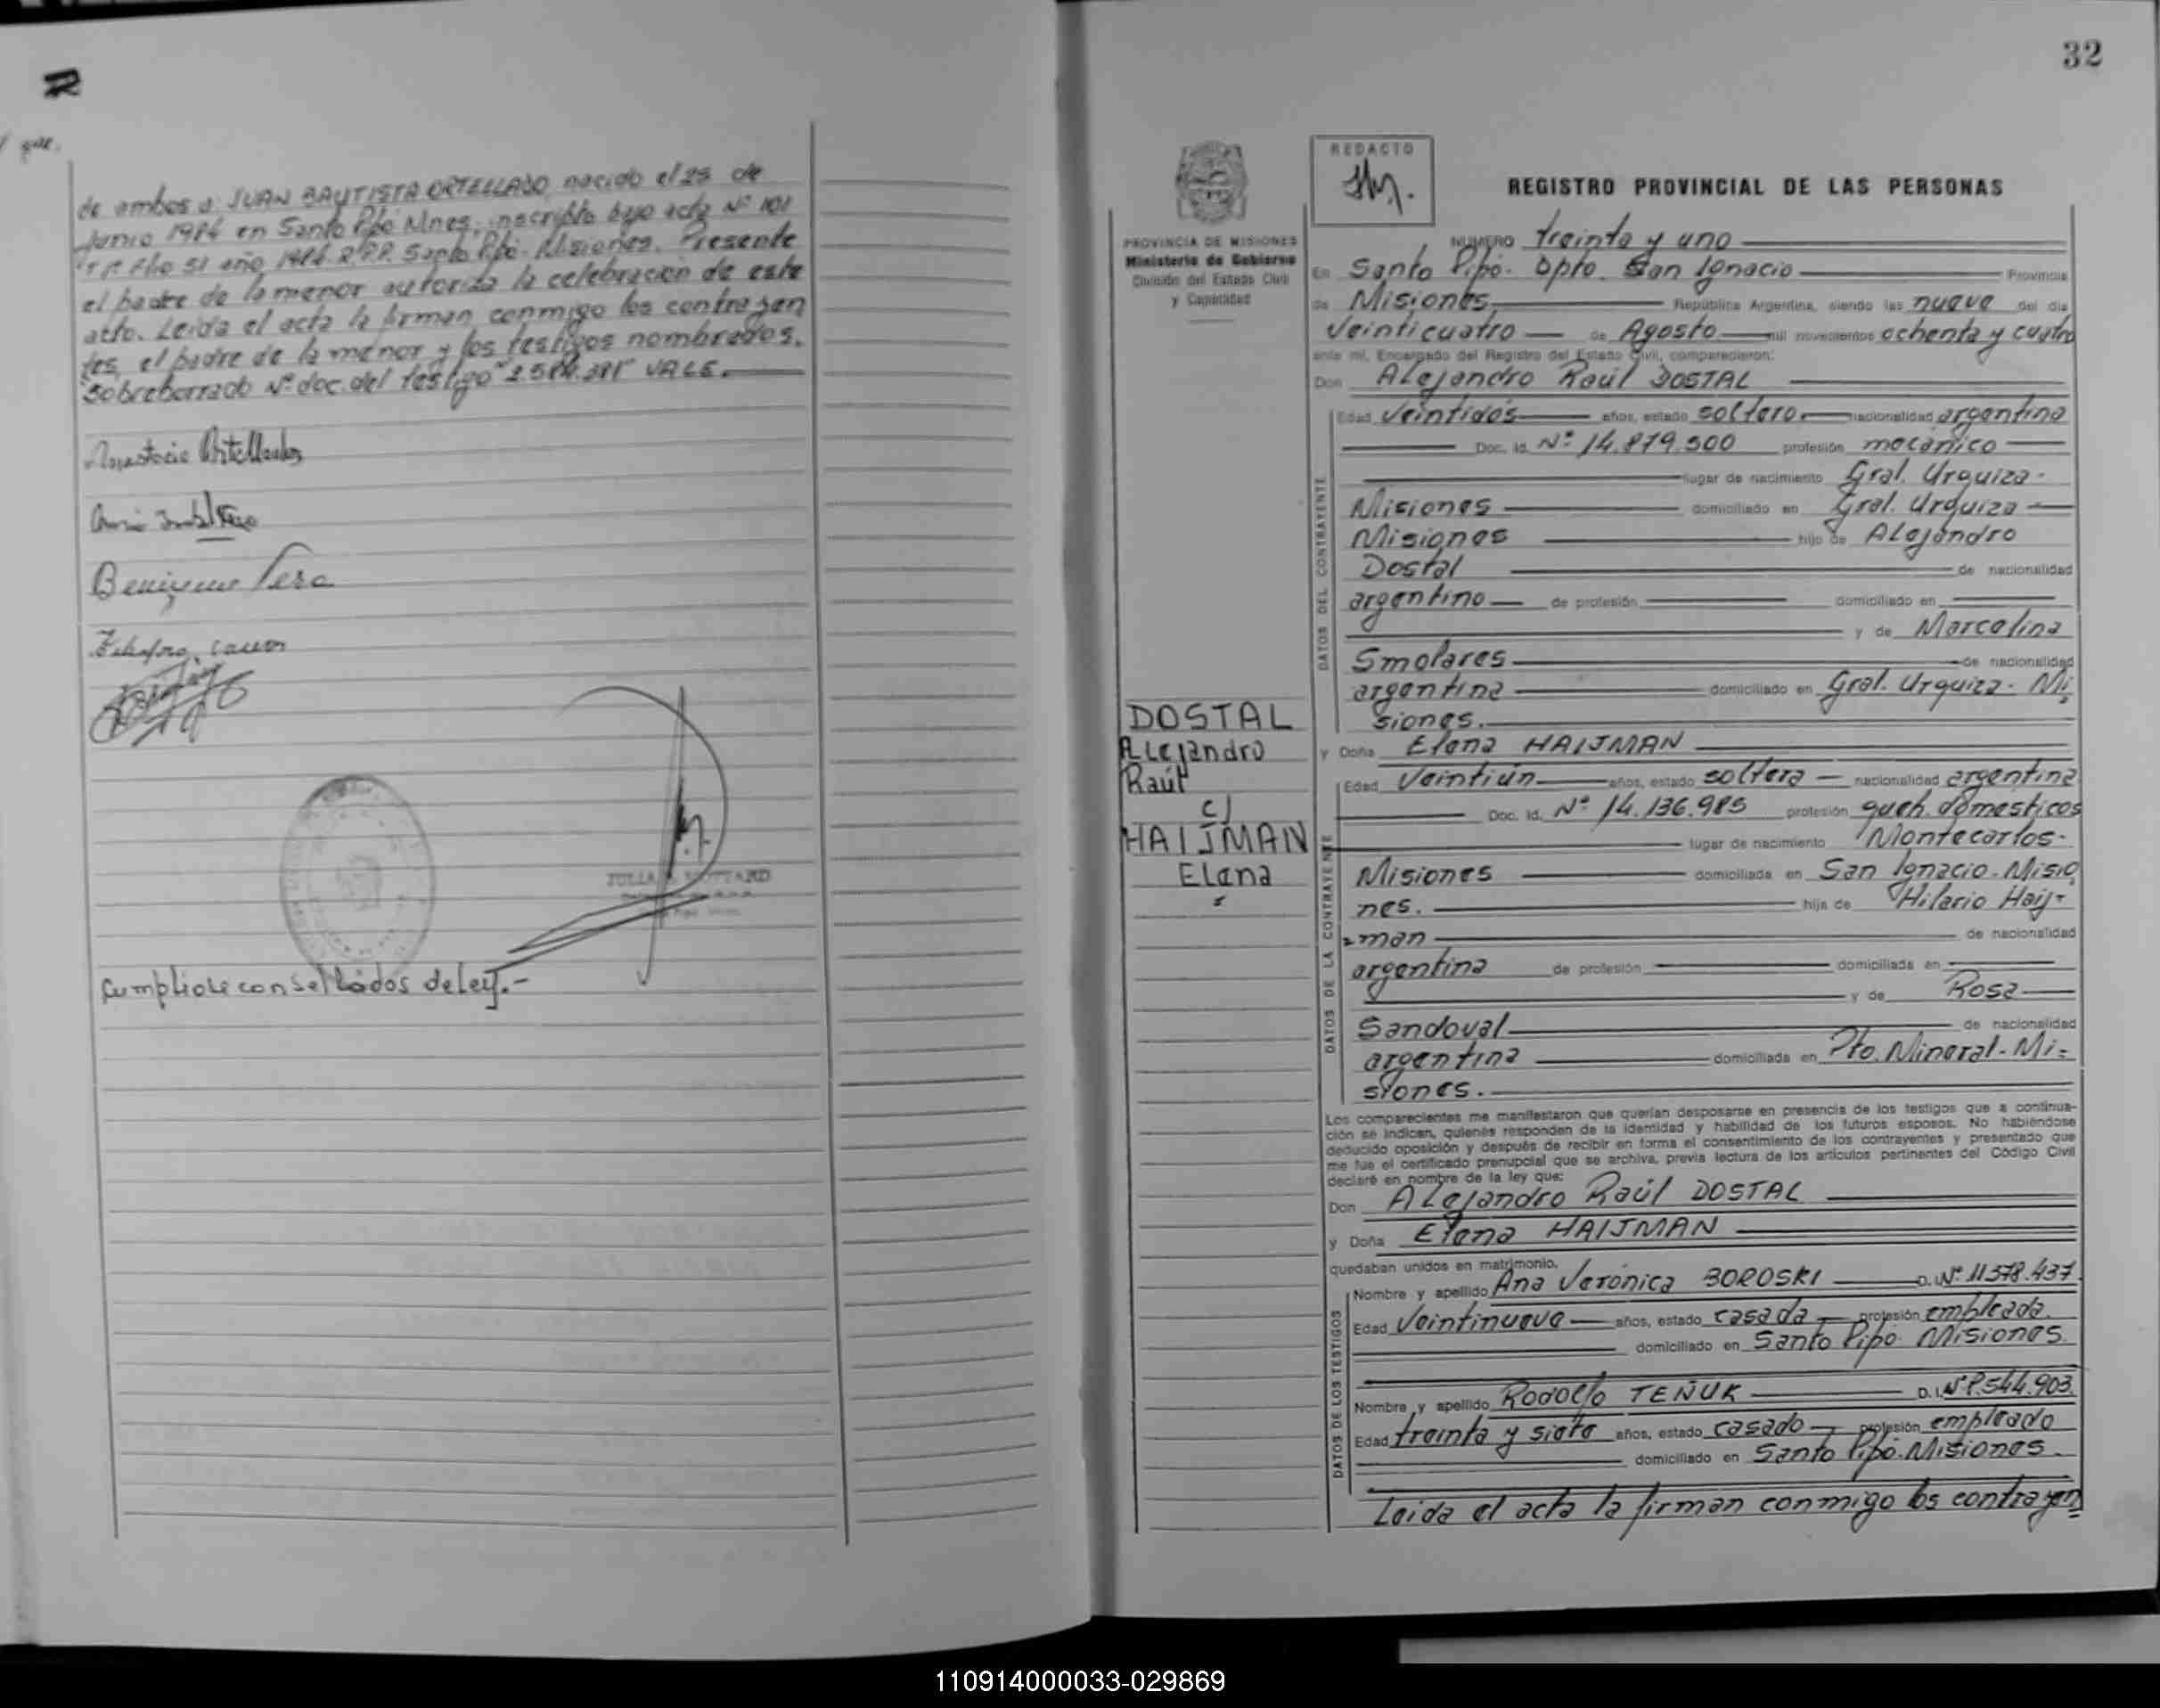 de ambos a JUAN BAUTISTA ORTELLADO nacido el 25 de
Junio 1984 en Santo Pipó Mnes, inscripto bajo acta Nº 101
Flio 51 año 1984 R.P.P. Santo Pipó - Misiones. Presente
el padre de la menor autoriza la celebración de este
acto. Leída el acta la firman conmigo los contrayen
tes, el padre de la menor y los testigos nombrados.
Sobreborrado Nº doc. del testigo "2.584.381" VALE.
Anastacio Ortellado
Benigno Vera
JULIA
Cumpliose con sellados de ley.-
32
PROVINCIA DE MISIONES
Ministerio de Gobierno
División del Estado Civil
y Capacidad
REDACTO
REGISTRO PROVINCIAL DE LAS PERSONAS
NUMERO treinta y uno
En Santo Pipó. Dpto. San Ignacio Provincia
de Misiones, República Argentina, siendo las nueve del día
Veinticuatro de Agosto mil novecientos ochenta y cuatro
ante mí, Encargado del Registro del Estado Civil, comparecieron:
Don Alejandro Raúl DOSTAL
DATOS DEL CONTRAYENTE
Edad Veintidós años, estado soltero nacionalidad argentina
Doc. Id. Nº 14.879.500 profesión mecánico
lugar de nacimiento Gral. Urquiza -
Misiones domiciliado en Gral. Urquiza
Misiones hijo de Alejandro
Dostal de nacionalidad
argentino de profesión domiciliado en
y de Marcelina
Smolares de nacionalidad
argentina domiciliado en Gral. Urquiza - Mi
siones.
DOSTAL
Alejandro
Raúl
c/
HAIJMAN
Elena
y Doña Elena HAIJMAN
DATOS DE LA CONTRAYENTE
Edad Veintiún años, estado soltera nacionalidad argentina
Doc. Id. Nº 14.136.985 profesión queh. domesticos
lugar de nacimiento Montecarlos-
Misiones domiciliada en San Ignacio - Misio
nes. hija de Hilario Haij-
man de nacionalidad
argentina de profesión domiciliada en
y de Rosa
Sandoval de nacionalidad
argentina domiciliada en Pto. Mineral - Mi=
siones.
Los comparecientes me manifestaron que querían desposarse en presencia de los testigos que a continua-
ción se indican, quienes responden de la identidad y habilidad de los futuros esposos. No habiéndose
deducido oposición y después de recibir en forma el consentimiento de los contrayentes y presentado que
me fue el certificado prenupcial que se archiva, previa lectura de los artículos pertinentes del Código Civil
declaré en nombre de la ley que:
Don Alejandro Raúl DOSTAL
y Doña Elena HAIJMAN
quedaban unidos en matrimonio.
DATOS DE LOS TESTIGOS
Nombre y apellido Ana Verónica BOROSKI D. I. Nº 11.578.437
Edad Veintinueve años, estado casada profesión empleada
domiciliado en Santo Pipó - Misiones.
Nombre y apellido Rodolfo TEÑUK D. I. Nº 8.544.903
Edad treinta y siete años, estado casado profesión empleado
domiciliado en Santo Pipó - Misiones.
Leída el acta la firman conmigo los contrayen
110914000033-029869